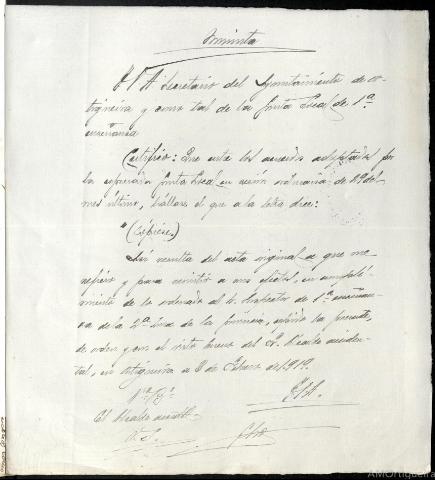 Minuta
Secretario del Ayuntamiento de Or-
tigueira y como tal de la Junta Local de 1ª
enseñanza
Certifico: Que entre los acuerdos adoptados por
la expresada Junta Local en sesión ordinaria de 29 del
mes último, hállase el que a la letra dice:
"(Cópiese)
Así resulta del acta original a que me
refiero y para remitir a sus efectos, en cumpli-
miento de lo ordenado al Sr. Inspector de 1ª enseñan-
za de la 2ª zona de la provincia, expido la presente,
de orden y con el visto bueno del Sr. Alcalde acciden-
tal, en Ortigueira a de Febrero de 1919.
Vº Bº
El Alcalde acctal.
AMOrtigueira